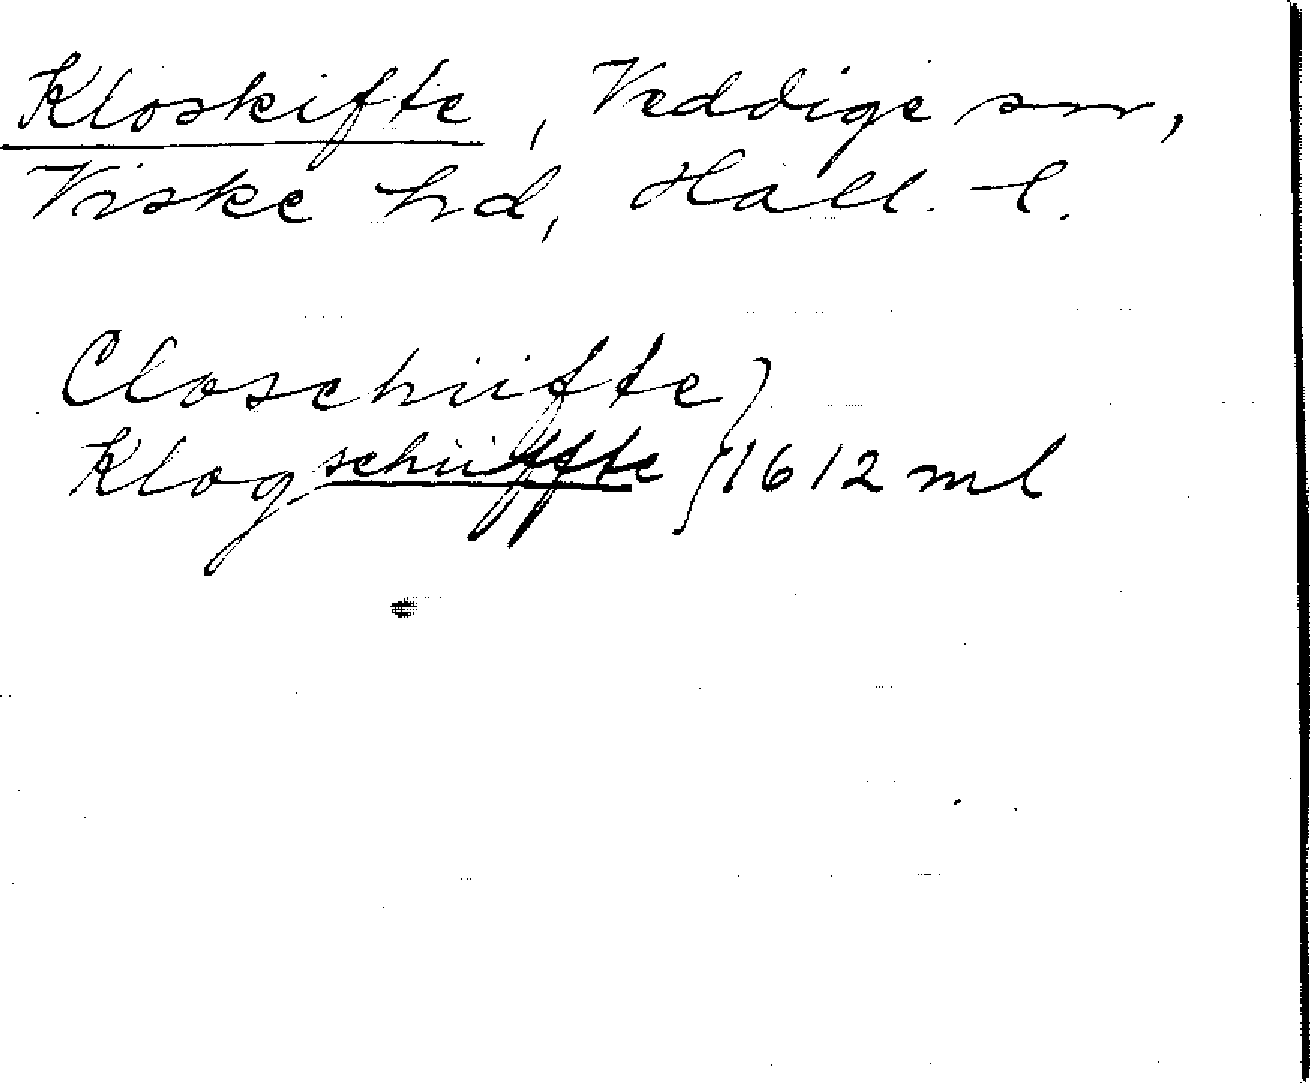 Kloskifte, Veddige sn,
Viske hd, Hall. l.
Closchiifte
Klogschiiffte } 1612 ml